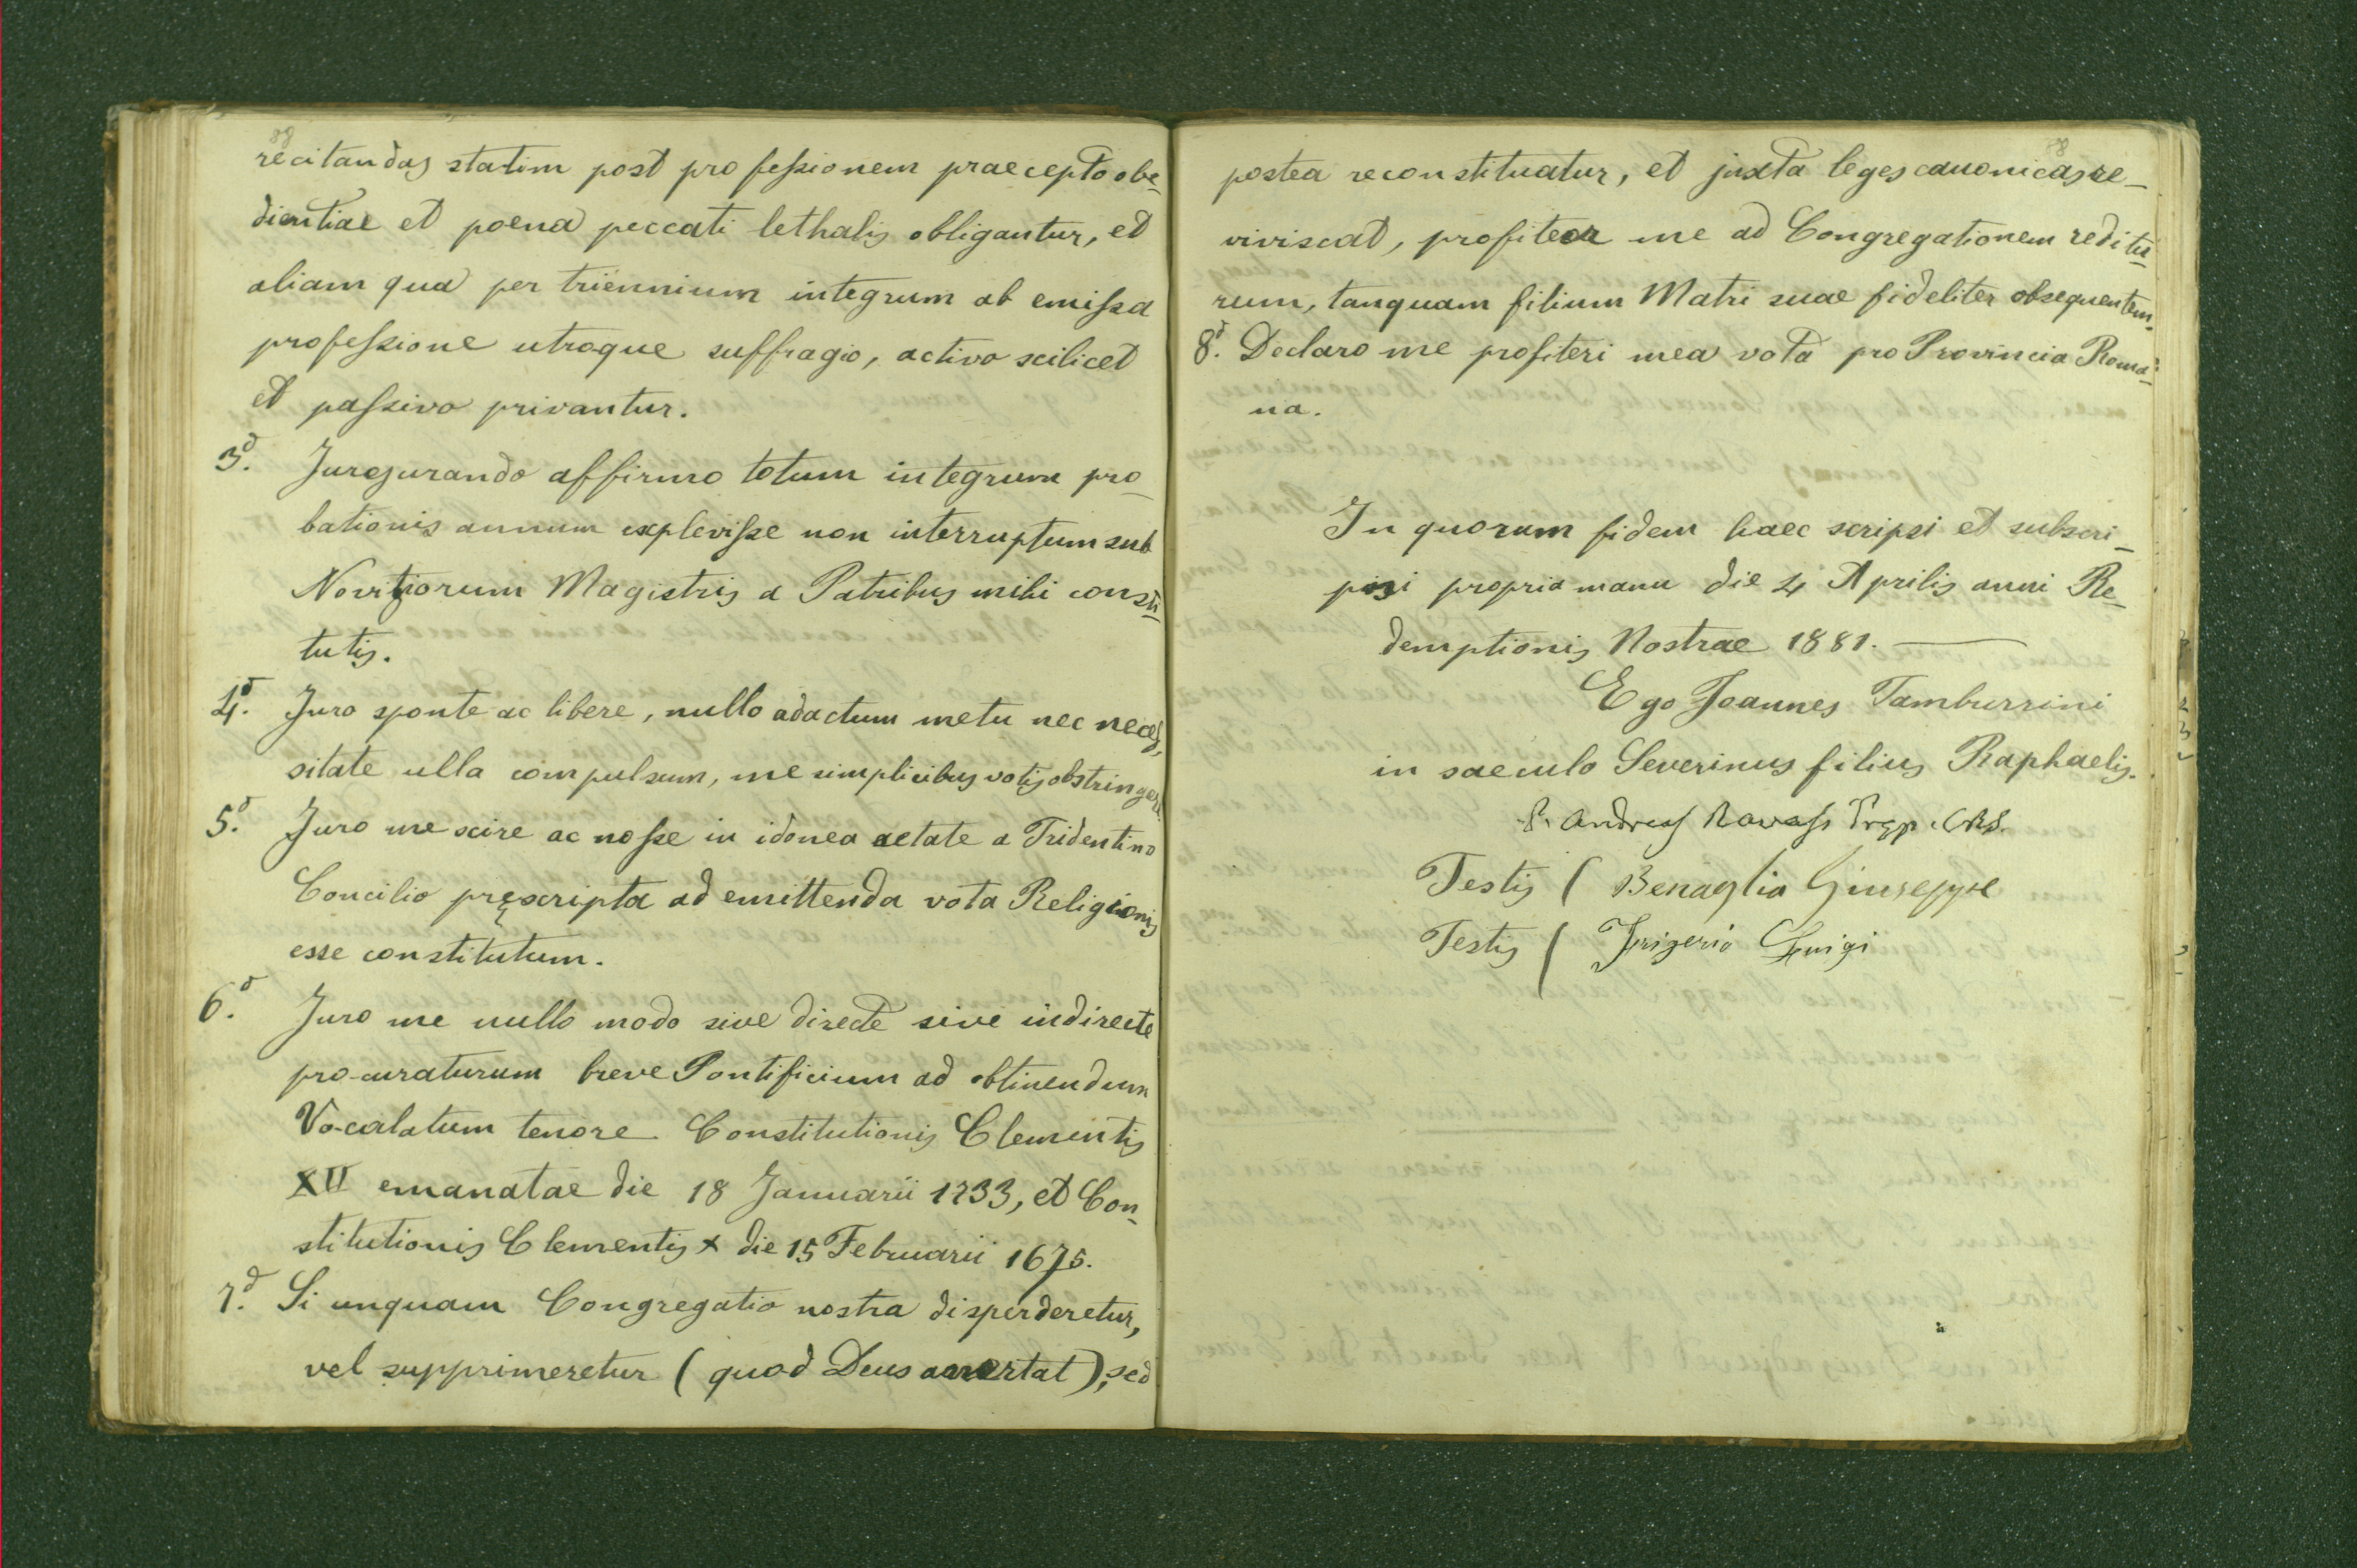 88
recitandas statim post profeſsionem praecepto obe-
dientiae et poena peccati lethalis obligantur, et
aliam qua per triennium integrum ab emiſsa
profeſsione utroque suffragio, activo scilicet
et paſsivo privantur.
3º. Jurejurando affirmo totum integrum pro-
bationis annum expleviſse non interruptum sub
Novitiorum Magistris a Patribus mihi consti-
tutis.
4º. Juro sponte ac libere, nullo adactum metu nec neces-
sitate ulla compulsum, me simplicibus votis obstringere.
5º. Juro me scire ac noſse in idonea aetate a Tridentino
Concilio pręscripta ad emittenda vota Religionis
esse constitutum.
6º. Juro me nullo modo sive directe sive indirecte
pro-curaturum breve Pontificium ad obtinendum
Vo-calatum tenore Constitutionis Clementis
XII emanatae die 18 Januarii 1733, et Con-
stitutionis Clementis X die 15 Februarii 1675.
7º. Si unquam Congregatio nostra disperderetur,
vel supprimeretur (quod Deus avertat), sed
88
postea reconstituatur, et juxta leges canonicas re-
viviscat, profiteor me ad Congregationem reditu-
rum, tanquam filium Matri suae fideliter obsequentem.
8º. Declaro me profiteri mea vota pro Provincia Roma-
na.
In quorum fidem haec scripsi et subscri-
psi propria manu die 4 Aprilis anni Re-
demptionis Nostrae 1881.
Ego Joannes Tamburrini
in saeculo Severinus filius Raphaelis.
P. Andreas Ravasi Prep. CRS.
Testis ( Benaglia Giuseppe
Testis ( Frigerio Luigi